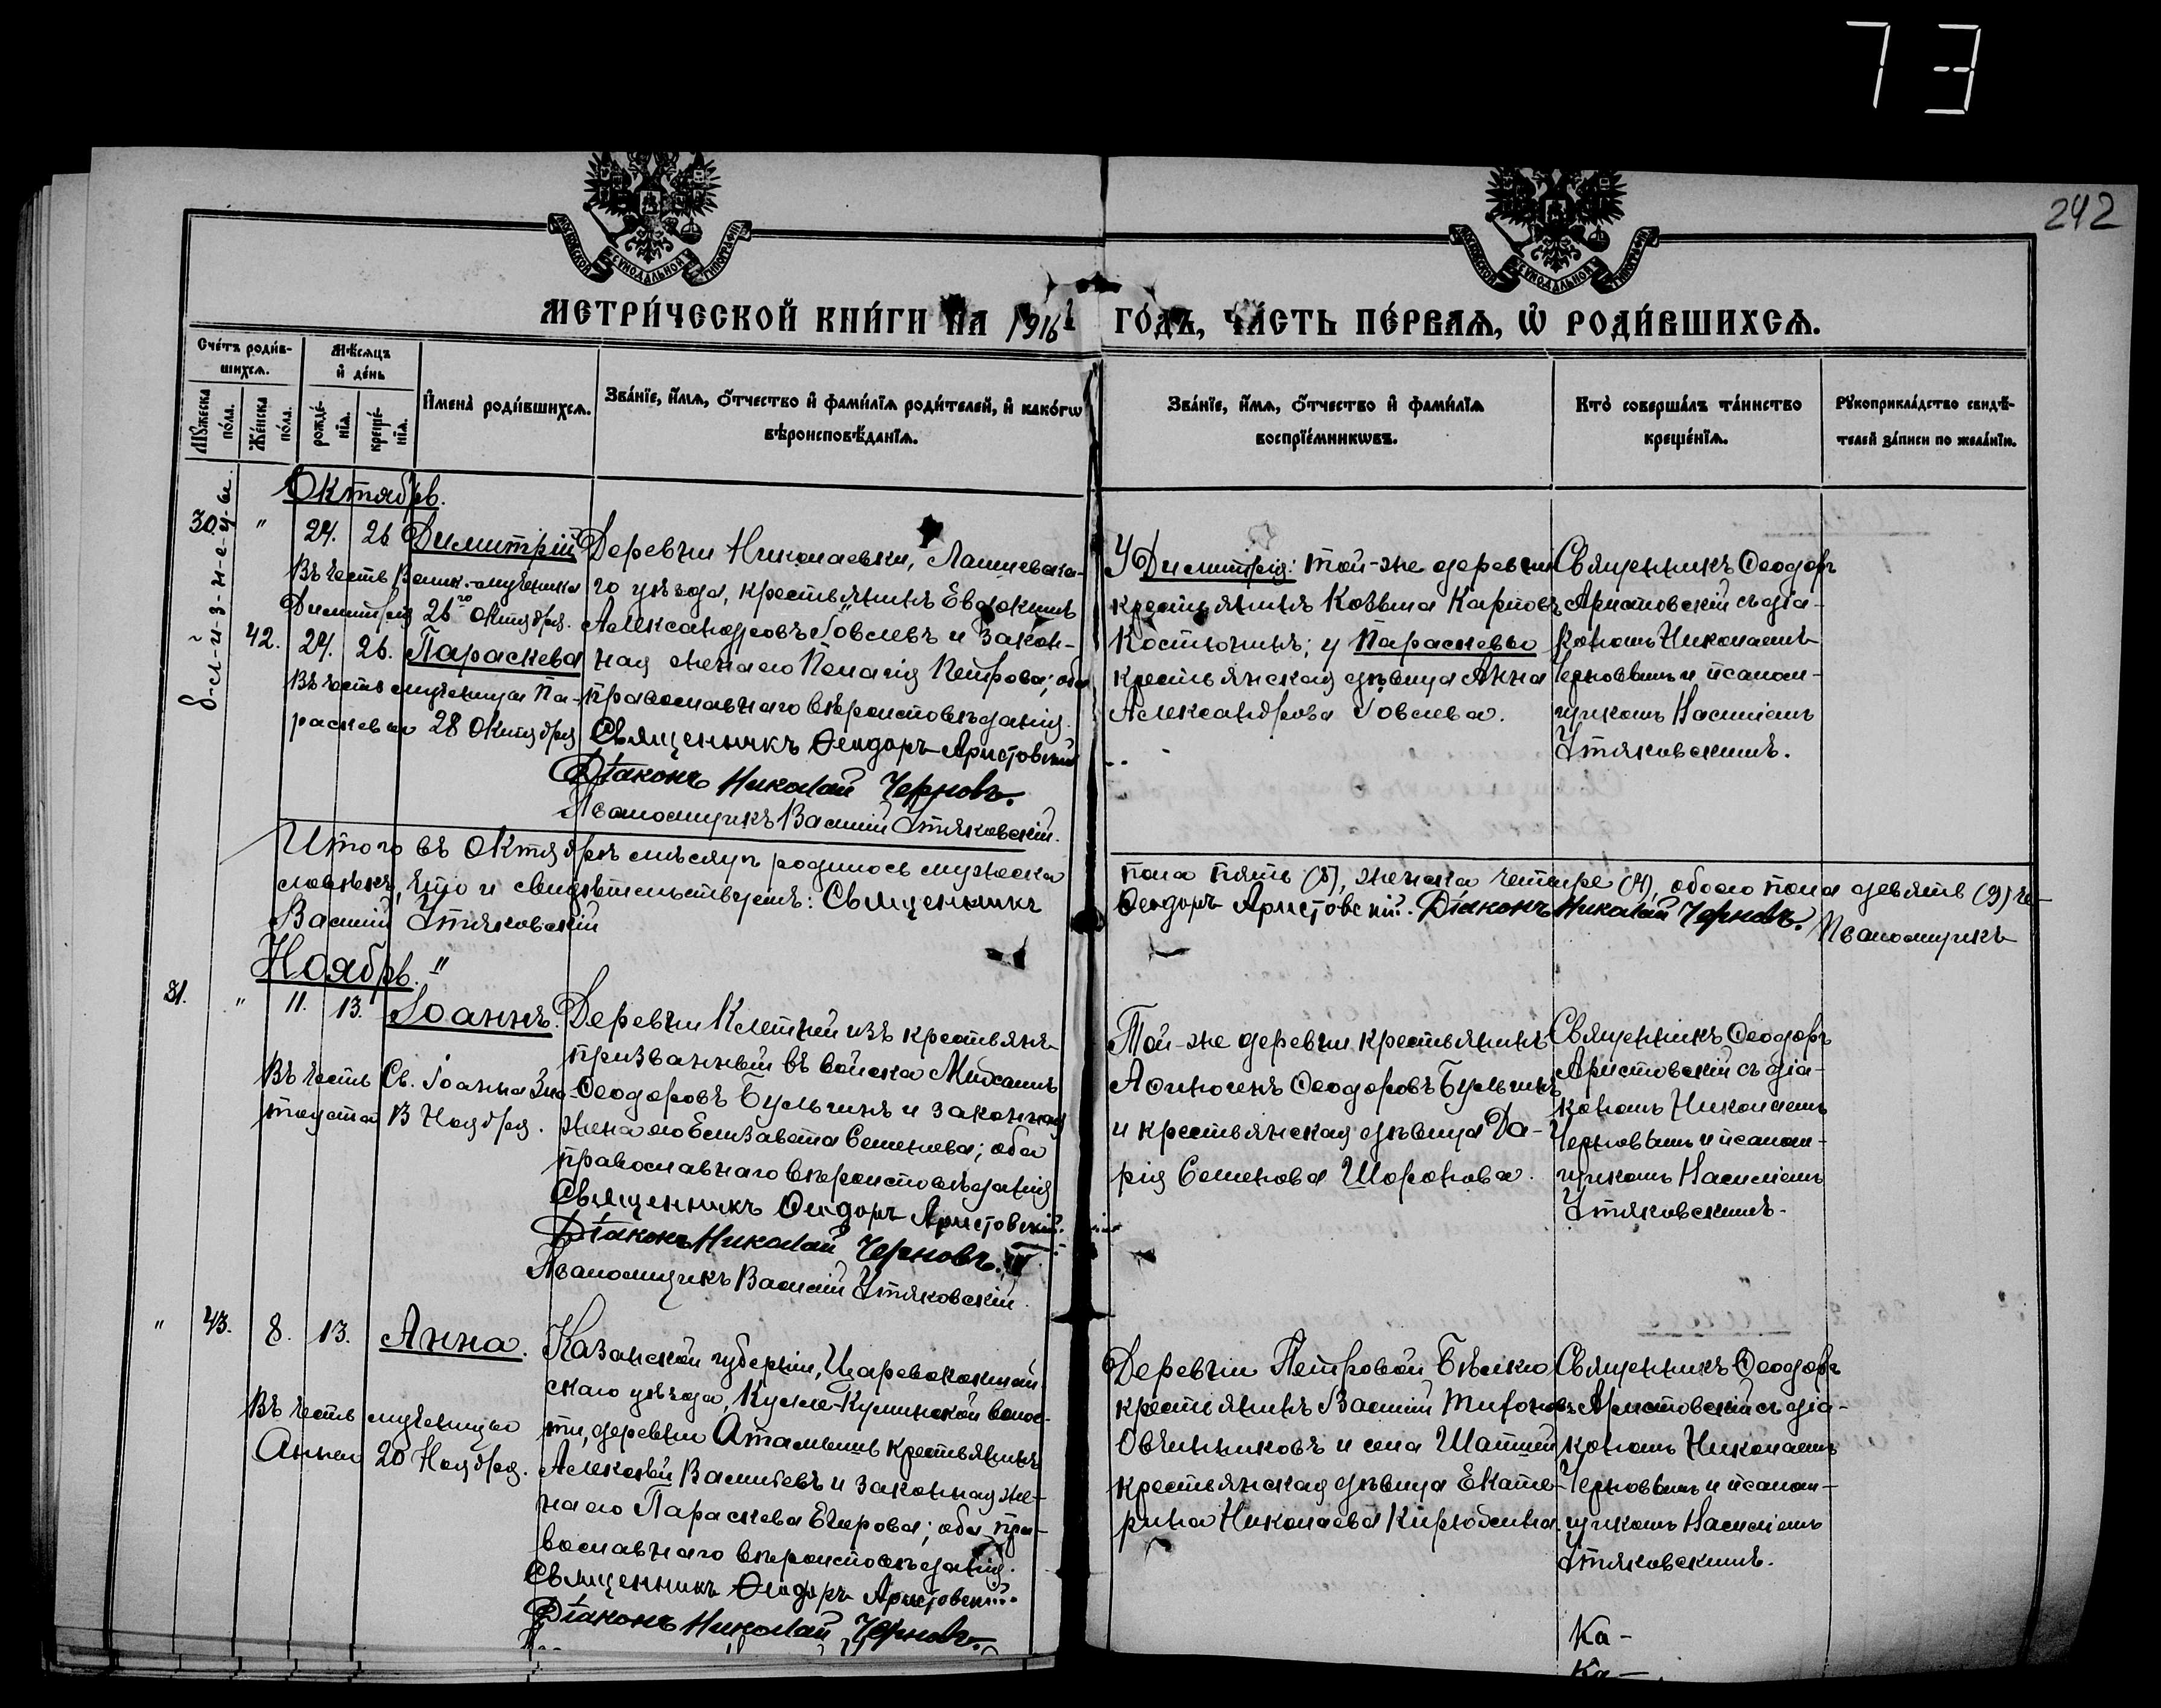 73
242
МОСКОВСКОЙ СѴНОДАЛЬНОЙ ТИПОГРАФІИ
МОСКОВСКОЙ СѴНОДАЛЬНОЙ ТИПОГРАФІИ
МЕТРИ́ЧЕСКОЙ КНИ́ГИ НА 1916й ГО́ДЪ, ЧА́СТЬ ПЕ́РВАѦ, Ѡ҆ РОДИ́ВШИХСѦ.
Сче́тъ роди́в-
шихсѧ.
Мꙋ́жеска
по́ла.
Же́нска
по́ла.
Мѣ́сѧцъ
и҆ де́нь
рожде́-
нїѧ.
креще́-
нїѧ.
И҆мена̀ роди́вшихсѧ.
Зва́нїе, и҆́мѧ, ѻ҆́тчество и҆ фами́лїѧ роди́телей, и҆ како́гѡ
вѣроисповѣ́данїѧ.
Зва́нїе, и҆́мѧ, ѻ҆́тчество и҆ фами́лїѧ
воспрїе́мникѡвъ.
Кто̀ соверша́лъ та́инство
креще́нїѧ.
Рꙋкоприкла́дство свидѣ́-
телей за́писи по жела́нїю.
Октябрь.
б-л-и-з-н-е-ц-ы.
30. " 24. 26 Димитрій
Въ честь Велик.-мученика
Димитрія 26го Октября.
42. 24. 26. Параскева
Въ честь мученицы Па-
раскевы 28 Октября
Деревни Николаевки, Лаишевска-
го уѣзда, крестьянинъ Евдокимъ
Александровъ Говлевъ и закон-
ная жена его Пелагія Петрова; оба
православнаго вѣроисповѣданія.
Священникъ Ѳеодоръ Аристовскій
Діаконъ Николай Черновъ.
Псаломщикъ Василій Утяковскій.
У Димитрія: той-же деревни
крестьянинъ Козьма Карповъ
Костючинъ; у Параскевы
крестьянская дѣвица Анна
Александрова Говлева.
Священникъ Ѳеодоръ
Аристовскій съ діа-
кономъ Николаемъ
Черновымъ и псалом-
щикомъ Василіемъ
Утяковскимъ.
Итого въ Октябрѣ мѣсяцѣ родилось мужеска пола пять (5), женска четыре (4), обоего пола девять (9) че-
ловѣкъ, что и свидѣтельствуемъ: Священникъ Ѳеодоръ Аристовскій. Діаконъ Николай Черновъ. Псаломщикъ
Василій Утяковскій
Ноябрь."
31. " 11. 13. Іоаннъ.
Въ честь Св. Іоанна Зла-
тоуста 13 Ноября.
Деревни Клетней изъ крестьянъ
призванный въ войска Михаилъ
Ѳеодоровъ Булыгинъ и законная
жена его Елизавета Семенова; оба
православнаго вѣроисповѣданія
Священникъ Ѳеодоръ Аристовскій.
Діаконъ Николай Черновъ.
Псаломщикъ Василій Утяковскій.
Той-же деревни крестьянинъ
Аѳиногенъ Ѳеодоровъ Булыгинъ
и крестьянская дѣвица Да-
рія Семенова Шоронова.
Священникъ Ѳеодоръ
Аристовскій съ діа-
кономъ Николаемъ
Черновымъ и псалом-
щикомъ Василіемъ
Утяковскимъ.
" 43. 8. 13. Анна.
Въ честь мученицы
Анны 20 Ноября.
Казанской губерніи, Царевококшай-
скаго уѣзда, Кулле-Киминской волос-
ти, деревни Аталышъ крестьянинъ
Алексѣй Васильевъ и законная же-
на его Параскева Егорова; оба пра-
вославнаго вѣроисповѣданія.
Священникъ Ѳеодоръ Аристовскій.
Діаконъ Николай Черновъ.
Деревни Петровой
крестьянинъ Василій Тихоновъ
Овчинниковъ и села Шапшей
крестьянская дѣвица Екате-
рина Николаева Кирюхина.
Священникъ Ѳеодоръ
Аристовскій съ діа-
кономъ Николаемъ
Черновымъ и псалом-
щикомъ Василіемъ
Утяковскимъ.
Ка-
Ка-